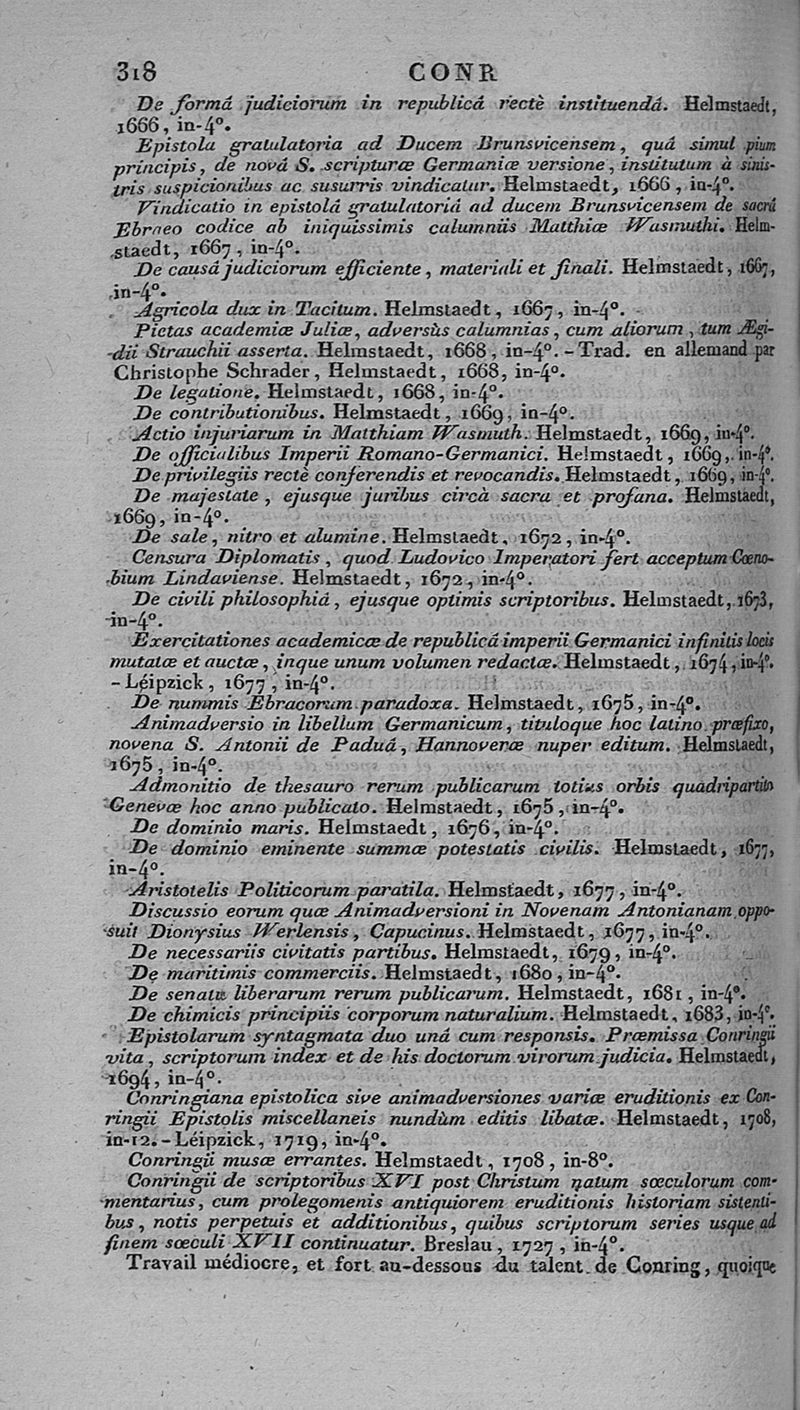 318 CONR
De formâ judiciorum in republicâ rectè instituendâ. Helmstaedt,
1666, in-4°.
Epistola gratulatoria ad Ducem Brunsvicensem, quâ simul pium
principis, de novâ S. scripturæ Germaniæ versione, institutum à sinis-
tris suspicionibus ac susurris vindicatur. Helmstaedt, 1666, in-4°.
Vindicatio in epistolâ gratulatoriâ ad ducem Brunsvicensem de sacrâ
Ebraeo codice ab iniquissimis calumniis Matthiæ Wasmuthi. Helm-
staedt, 1667, in-4°.
De causâ judiciorum efficiente, materiali et finali. Helmstaedt, 1667,
in-4°.
Agricola dux in Tacitum. Helmstaedt, 1667, in-4°.
Pietas academiæ Juliæ, adversùs calumnias, cum aliorum, tum Ægi-
dii Strauchii asserta. Helmstaedt, 1668, in-4°. - Trad. en allemand par
Christophe Schrader, Helmstaedt, 1668, in-4°.
De legatione. Helmstaedt, 1668, in-4°.
De contributionibus. Helmstaedt, 1669, in-4°.
Actio injuriarum in Matthiam Wasmuth. Helmstaedt, 1669, in-4°.
De officialibus Imperii Romano-Germanici. Helmstaedt, 1669, in-4°.
De privilegiis rectè conferendis et revocandis. Helmstaedt, 1669, in-4°.
De majestate, ejusque juribus circà sacra et profana. Helmstaedt,
1669, in-4°.
De sale, nitro et alumine. Helmstaedt, 1672, in-4°.
Censura Diplomatis, quod Ludovico Imperatori fert acceptum Cœno-
bium Lindaviense. Helmstaedt, 1672, in-4°.
De civili philosophiâ, ejusque optimis scriptoribus. Helmstaedt, 1673,
in-4°.
Exercitationes academicæ de republicâ imperii Germanici infinitis locis
mutatæ et auctæ, inque unum volumen redactæ. Helmstaedt, 1674, in-4°.
- Léipzick, 1677, in-4°.
De nummis Ebracorum paradoxa. Helmstaedt, 1675, in-4°.
Animadversio in libellum Germanicum, tituloque hoc latino præfixo,
novena S. Antonii de Paduâ, Hannoveræ nuper editum. Helmstaedt,
1675, in-4°.
Admonitio de thesauro rerum publicarum totius orbis quadripartito
Genevæ hoc anno publicato. Helmstaedt, 1675, in-4°.
De dominio maris. Helmstaedt, 1676, in-4°.
De dominio eminente summæ potestatis civilis. Helmstaedt, 1677,
in-4°.
Aristotelis Politicorum paratila. Helmstaedt, 1677, in-4°.
Discussio eorum quæ Animadversioni in Novenam Antonianam oppo-
suit Dionysius Werlensis, Capucinus. Helmstaedt, 1677, in-4°.
De necessariis civitatis partibus. Helmstaedt, 1679, in-4°.
De maritimis commerciis. Helmstaedt, 1680, in-4°.
De senatu liberarum rerum publicarum. Helmstaedt, 1681, in-4°.
De chimicis principiis corporum naturalium. Helmstaedt, 1683, in-4°.
Epistolarum syntagmata duo unâ cum responsis. Præmissa Conringii
vita, scriptorum index et de his doctorum virorum judicia. Helmstaedt,
1694, in-4°.
Conringiana epistolica sive animadversiones variæ eruditionis ex Con-
ringii Epistolis miscellaneis nundùm editis libatæ. Helmstaedt, 1708,
in-12. - Léipzick, 1719, in-4°.
Conringii musæ errantes. Helmstaedt, 1708, in-8°.
Conringii de scriptoribus XVI post Christum natum sæculorum com-
mentarius, cum prolegomenis antiquiorem eruditionis historiam sistenti-
bus, notis perpetuis et additionibus, quibus scriptorum series usque ad
finem sæculi XVII continuatur. Breslau, 1727, in-4°.
Travail médiocre, et fort au-dessous du talent de Conring, quoique